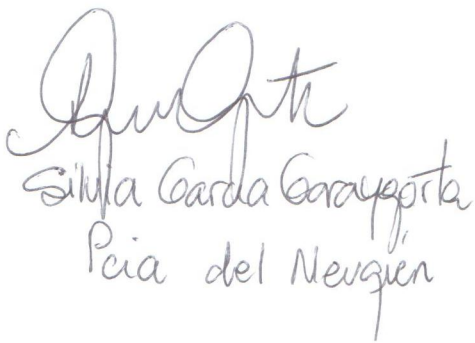 Silvia Garcia Garaygorta
Pcia del Neuquén